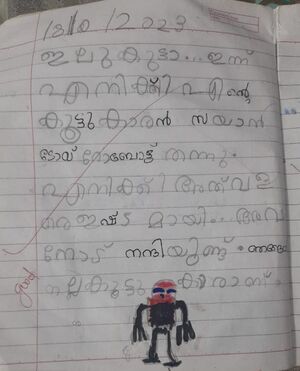 18/10/2023
ഇലുകുട്ടാ... ഇന്ന്
എനിക്ക് എന്റെ
കൂട്ടുകാരൻ സയാൻ
ടോയ് റോബോട്ട് തന്നു.
എനിക്ക് അത് വള
രെ ഇഷ്ട മായി.. അവ
നോട് നന്ദിയുണ്ട്. ഞങ്ങൾ
നല്ല കൂട്ടു കാരാണ്.
good